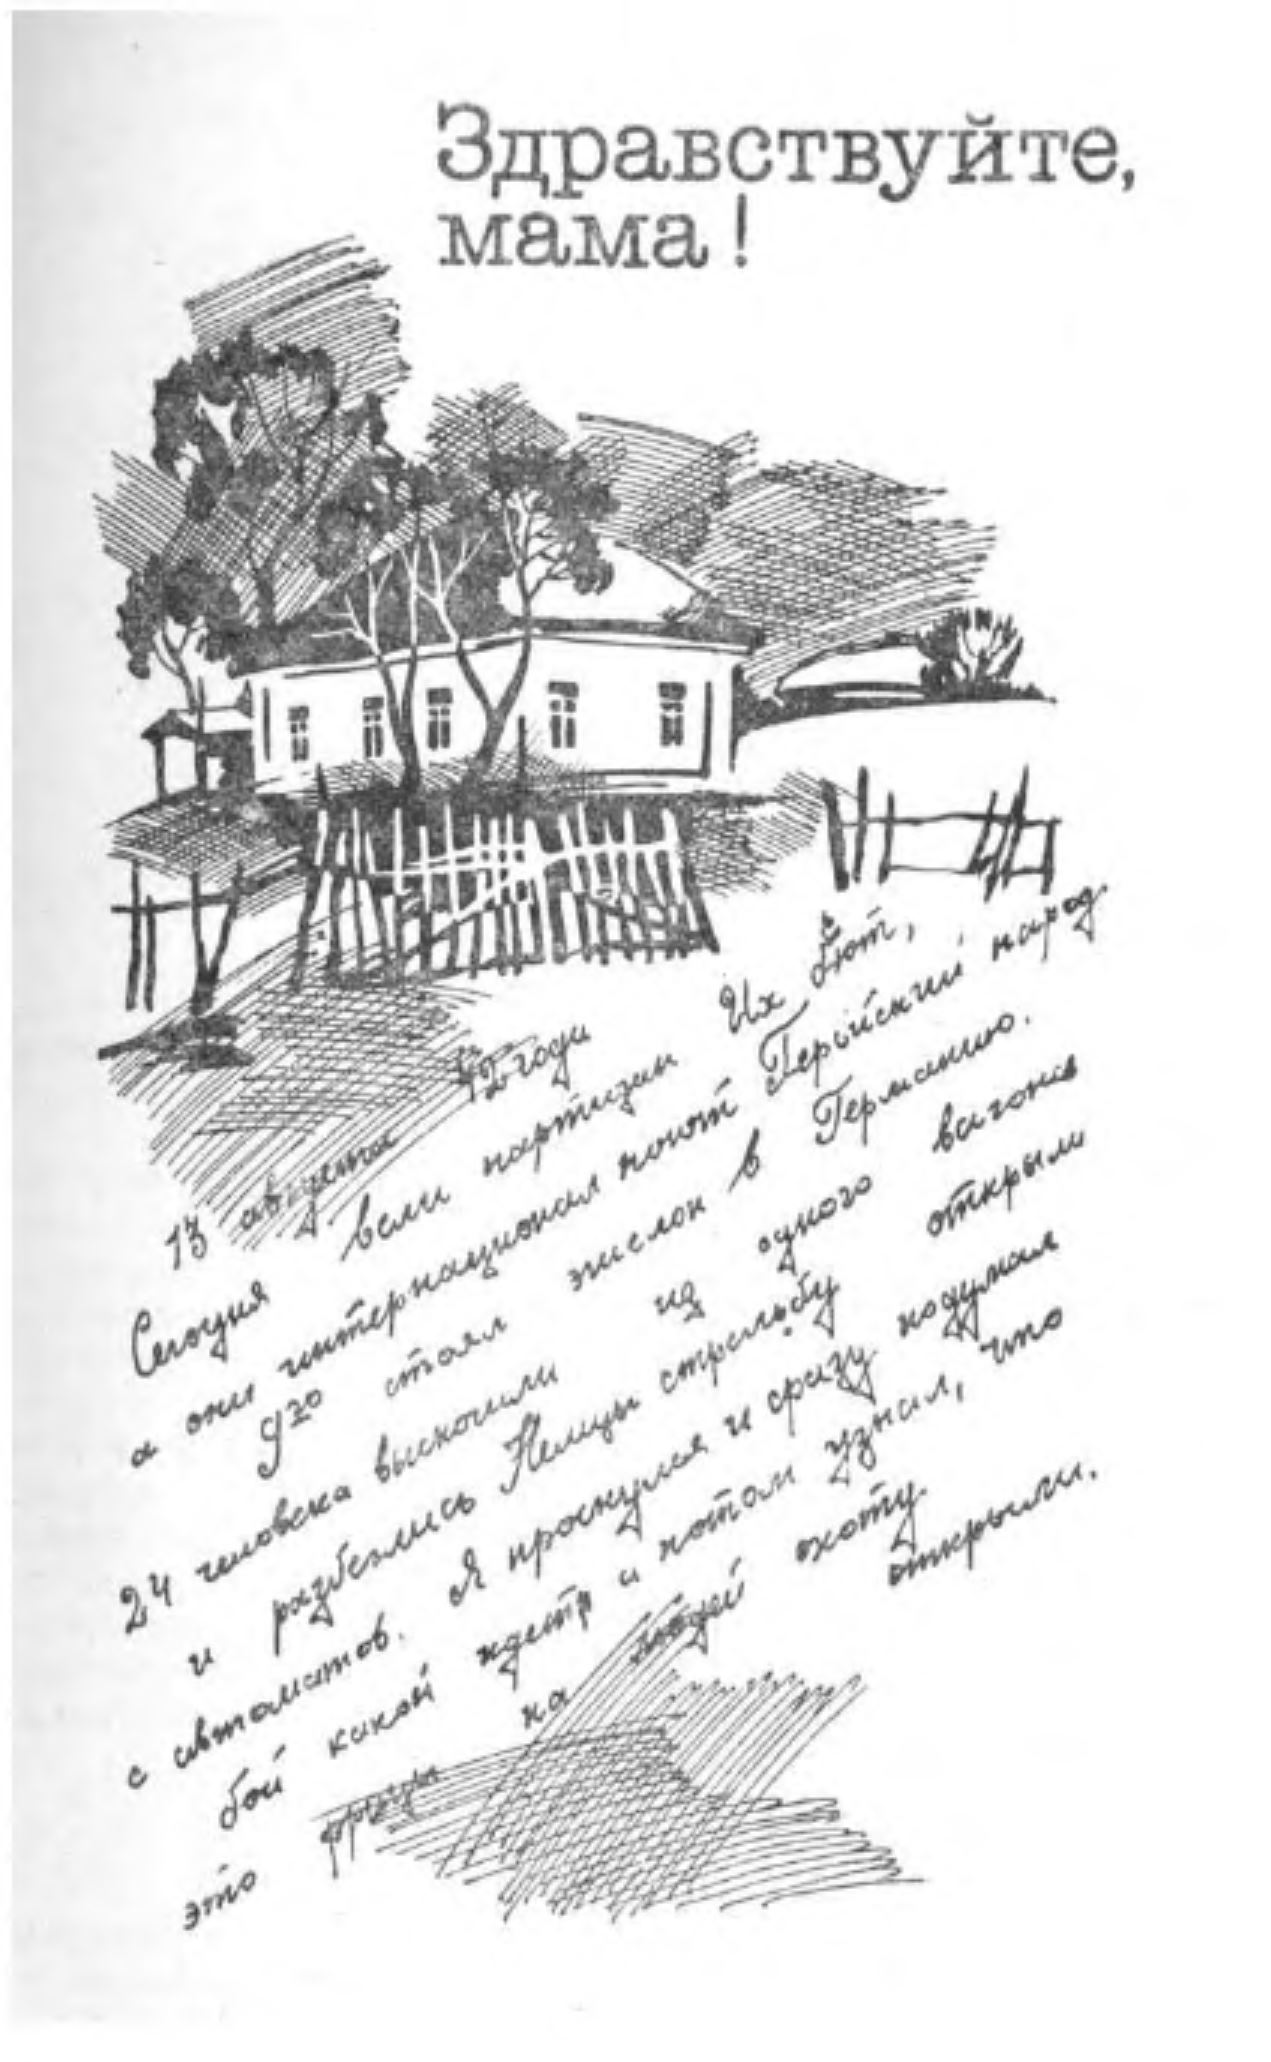 Здравствуйте,
мама!
13 августа 42 года
Сегодня вели партизан Их бют,
а они интернационал поют Геройский народ
9 20 стоял эшелон в Германию.
24 человека выскочили из одного вагона
и разбежались Немцы стрельбу открыли
с автоматов. Я проснулся и сразу подумал
бой какой идет и потом узнал, что
это фрицы на людей охоту открыли.